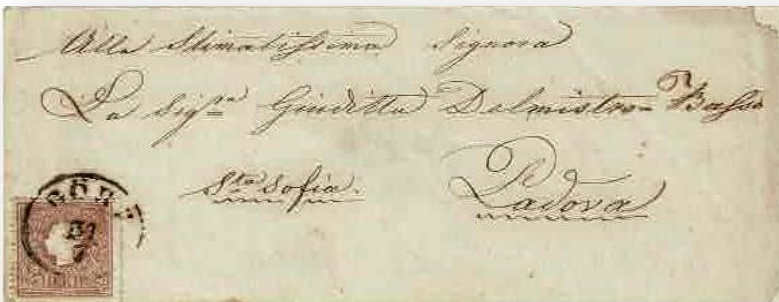 Alla Stimatissima Signora
La Sig.ra Giuditta Dalmistro Basso
Sta Sofia.
Padova